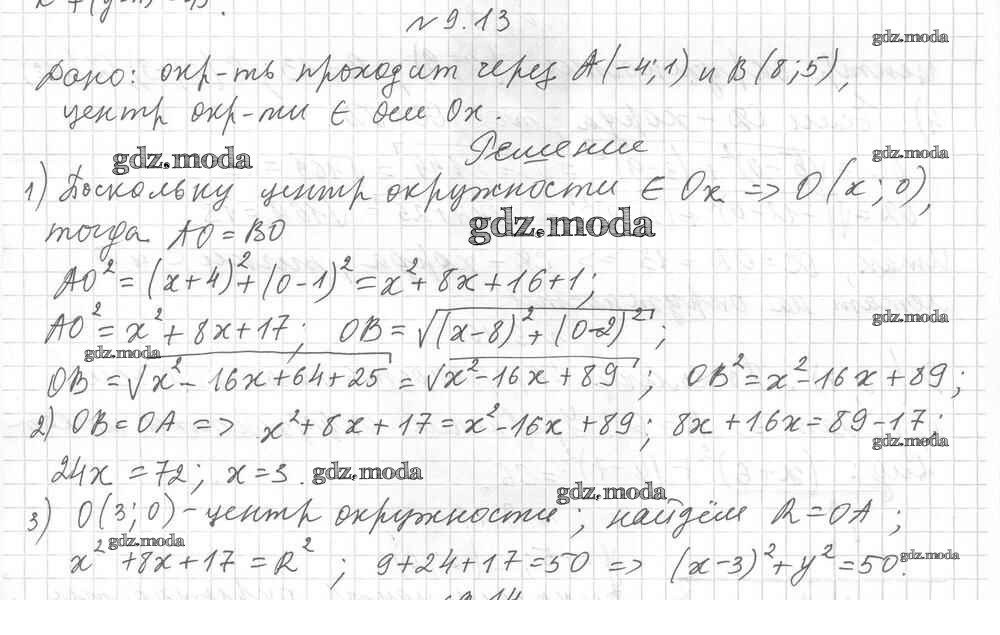 №9.13
gdz.moda
Дано: окр-ть проходит через A(-4;1) и B(8;5),
центр окр-ти ∈ оси Ox.
Решение
gdz.moda
gdz.moda
1) Поскольку центр окружности ∈ Ox => O(x;0),
тогда AO = BO
gdz.moda
AO² = (x+4)² + (0-1)² = x² + 8x + 16 + 1;
AO² = x² + 8x + 17; OB = √((x-8)² + (0-2)²);
gdz.moda
gdz.moda
OB = √(x² - 16x + 64 + 25) = √(x² - 16x + 89); OB² = x² - 16x + 89;
2) OB = OA => x² + 8x + 17 = x² - 16x + 89; 8x + 16x = 89 - 17;
gdz.moda
24x = 72; x = 3.
gdz.moda
gdz.moda
3) O(3;0) - центр окружности; найдём R = OA;
gdz.moda
x² + 8x + 17 = R²; 9 + 24 + 17 = 50 => (x-3)² + y² = 50.
gdz.moda